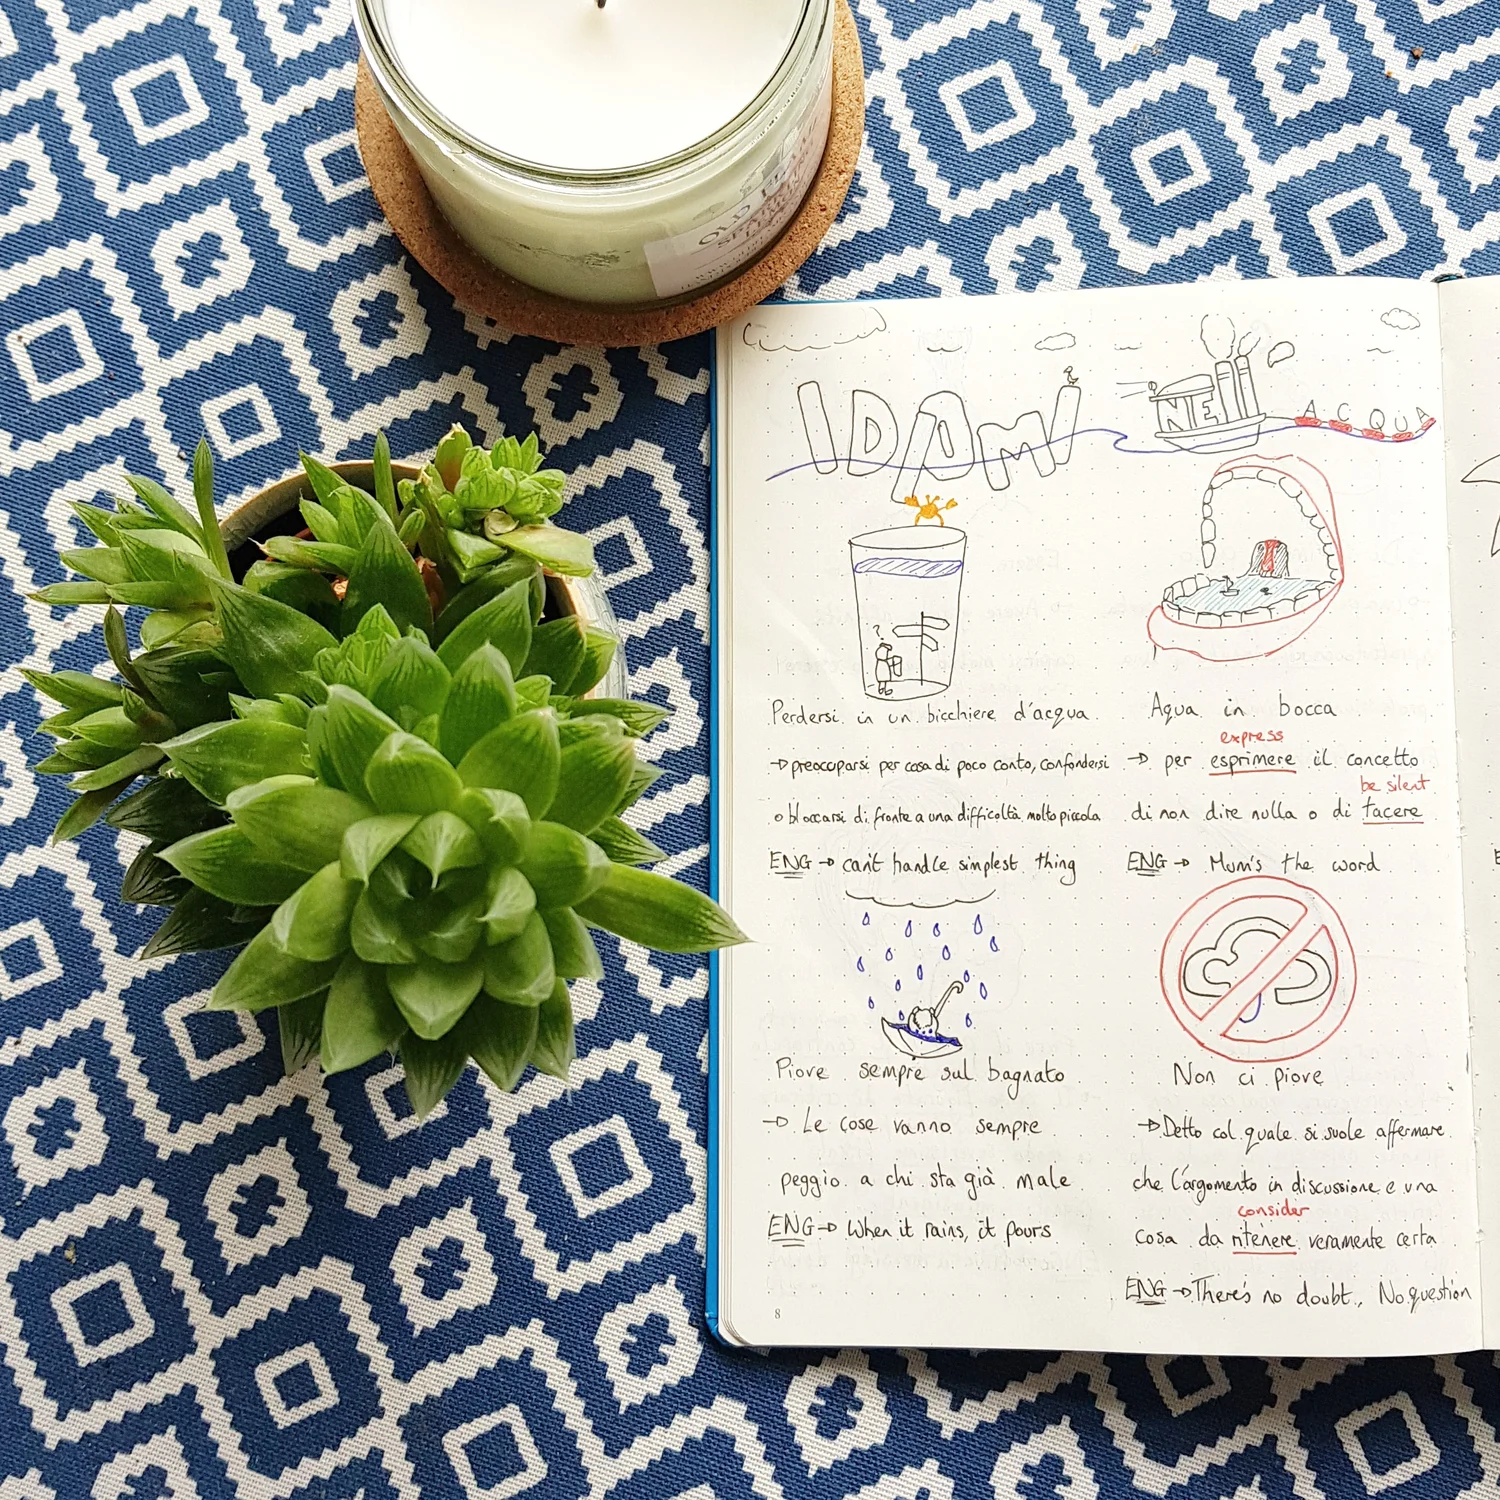 IDIOMI NELL' ACQUA
Perdersi in un bicchiere d'acqua
→ preoccuparsi per cosa di poco conto, confondersi
o bloccarsi di fronte a una difficoltà molto piccola
ENG → can't handle simplest thing
Aqua in bocca
express
→ per esprimere il concetto
be silent
di non dire nulla o di tacere
ENG → Mum's the word
Piove sempre sul bagnato
→ Le cose vanno sempre
peggio a chi sta già male
ENG → When it rains, it pours
Non ci piove
→ Detto col quale si suole affermare
che l'argomento in discussione e una
consider
cosa da ritenere veramente certa
ENG → There's no doubt, No question
8